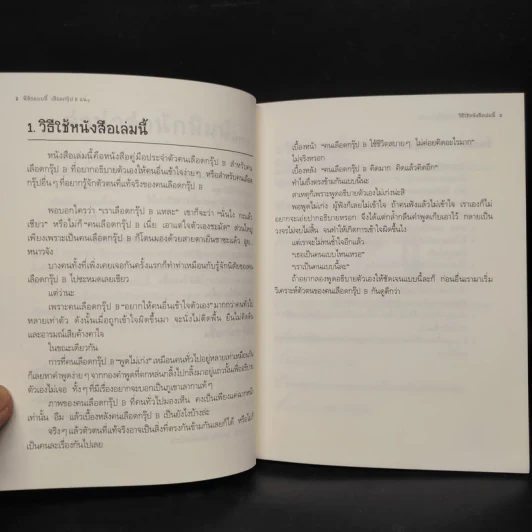 2 นิสัยแบบนี้ เลือดกรุ๊ป B
1. วิธีใช้หนังสือเล่มนี้
หนังสือเล่มนี้คือหนังสือคู่มือประจำตัวคนเลือดกรุ๊ป B สำหรับคน
เลือดกรุ๊ป B ที่อยากอธิบายตัวเองให้คนอื่นเข้าใจง่ายๆ หรือสำหรับคนเลือด
กรุ๊ปอื่นๆ ที่อยากรู้จักตัวตนที่แท้จริงของคนเลือดกรุ๊ป B
พอบอกใครว่า "เราเลือดกรุ๊ป B แหละ" เขาก็จะว่า "นั่นไง กะแล้ว
เชียว" หรือไม่ก็ "คนเลือดกรุ๊ป B เนี่ย เอาแต่ใจตัวเองชะมัด" ส่วนใหญ่
เพียงเพราะเป็นคนเลือดกรุ๊ป B ก็โดนมองด้วยสายตาเย็นชาซะแล้ว
หนาวจัง
บางคนทั้งที่เพิ่งเคยเจอกันครั้งแรกก็ทำท่าเหมือนกับรู้จักนิสัยของคน
เลือดกรุ๊ป B ไปซะหมดเลยเชียว
แต่ว่านะ
เพราะคนเลือดกรุ๊ป B "อยากให้คนอื่นเข้าใจตัวเอง" มากกว่าคนทั่วไป
หลายเท่าตัว ดังนั้นเมื่อถูกเข้าใจผิดขึ้นมา จะนั่งไม่ติดพื้น ยืนไม่ติดดิน
และอารมณ์เสียค้างคาใจ
ในขณะเดียวกัน
การที่คนเลือดกรุ๊ป B "พูดไม่เก่ง" เหมือนคนทั่วไปอยู่หลายเท่าเหมือนกัน
ก็เลยหาคำพูดง่ายๆ จากกองคำพูดที่ตกหล่นกลิ้งไปกลิ้งมาอยู่แถวนั้นเพื่ออธิบาย
ตัวเองไม่เจอ ทั้งๆ ที่มีเรื่องอยากจะบอกเป็นภูเขาเลากาแท้ๆ
ภาพของคนเลือดกรุ๊ป B ที่คนทั่วไปมองเห็น คงเป็นเพียงแค่ฉากหน้า
เท่านั้น อืม แล้วเบื้องหลังคนเลือดกรุ๊ป B เป็นยังไงบ้างล่ะ
จริงๆ แล้วตัวตนที่แท้จริงอาจเป็นสิ่งที่ตรงกันข้ามกันเลยก็ได้ หรือไม่ก็
เป็นคนละเรื่องกันไปเลย
วิธีใช้หนังสือเล่มนี้ 3
เบื้องหน้า "คนเลือดกรุ๊ป B ใช้ชีวิตสบายๆ ไม่ค่อยคิดอะไรมาก"
ไม่จริงหรอก
เบื้องหลัง "คนเลือดกรุ๊ป B คิดมาก คิดแล้วคิดอีก"
ทำไมถึงตรงข้ามกันแบบนี้นะ
สาเหตุก็เพราะพูดอธิบายตัวเองไม่เก่งน่ะสิ
พอพูดไม่เก่ง ผู้ฟังก็เลยไม่เข้าใจ ถ้าคนฟังแล้วไม่เข้าใจ เราเองก็ไม่
อยากจะเอ่ยปากอธิบายหรอก จึงได้แต่กล้ำกลืนคำพูดเก็บเอาไว้ กลายเป็น
วงจรไม่จบไม่สิ้น จนทำให้เกิดการเข้าใจผิดขึ้นไง
แต่เราจะไม่ทนช้ำใจอีกแล้ว
"เธอเป็นคนแบบไหนเหรอ"
"เราเป็นคนแบบนี้จ้ะ"
ถ้าอยากลองพูดอธิบายตัวเองให้ชัดเจนแบบนี้ละก็ ก่อนอื่นเรามาเริ่ม
วิเคราะห์ตัวตนของคนเลือดกรุ๊ป B กันดูดีกว่า